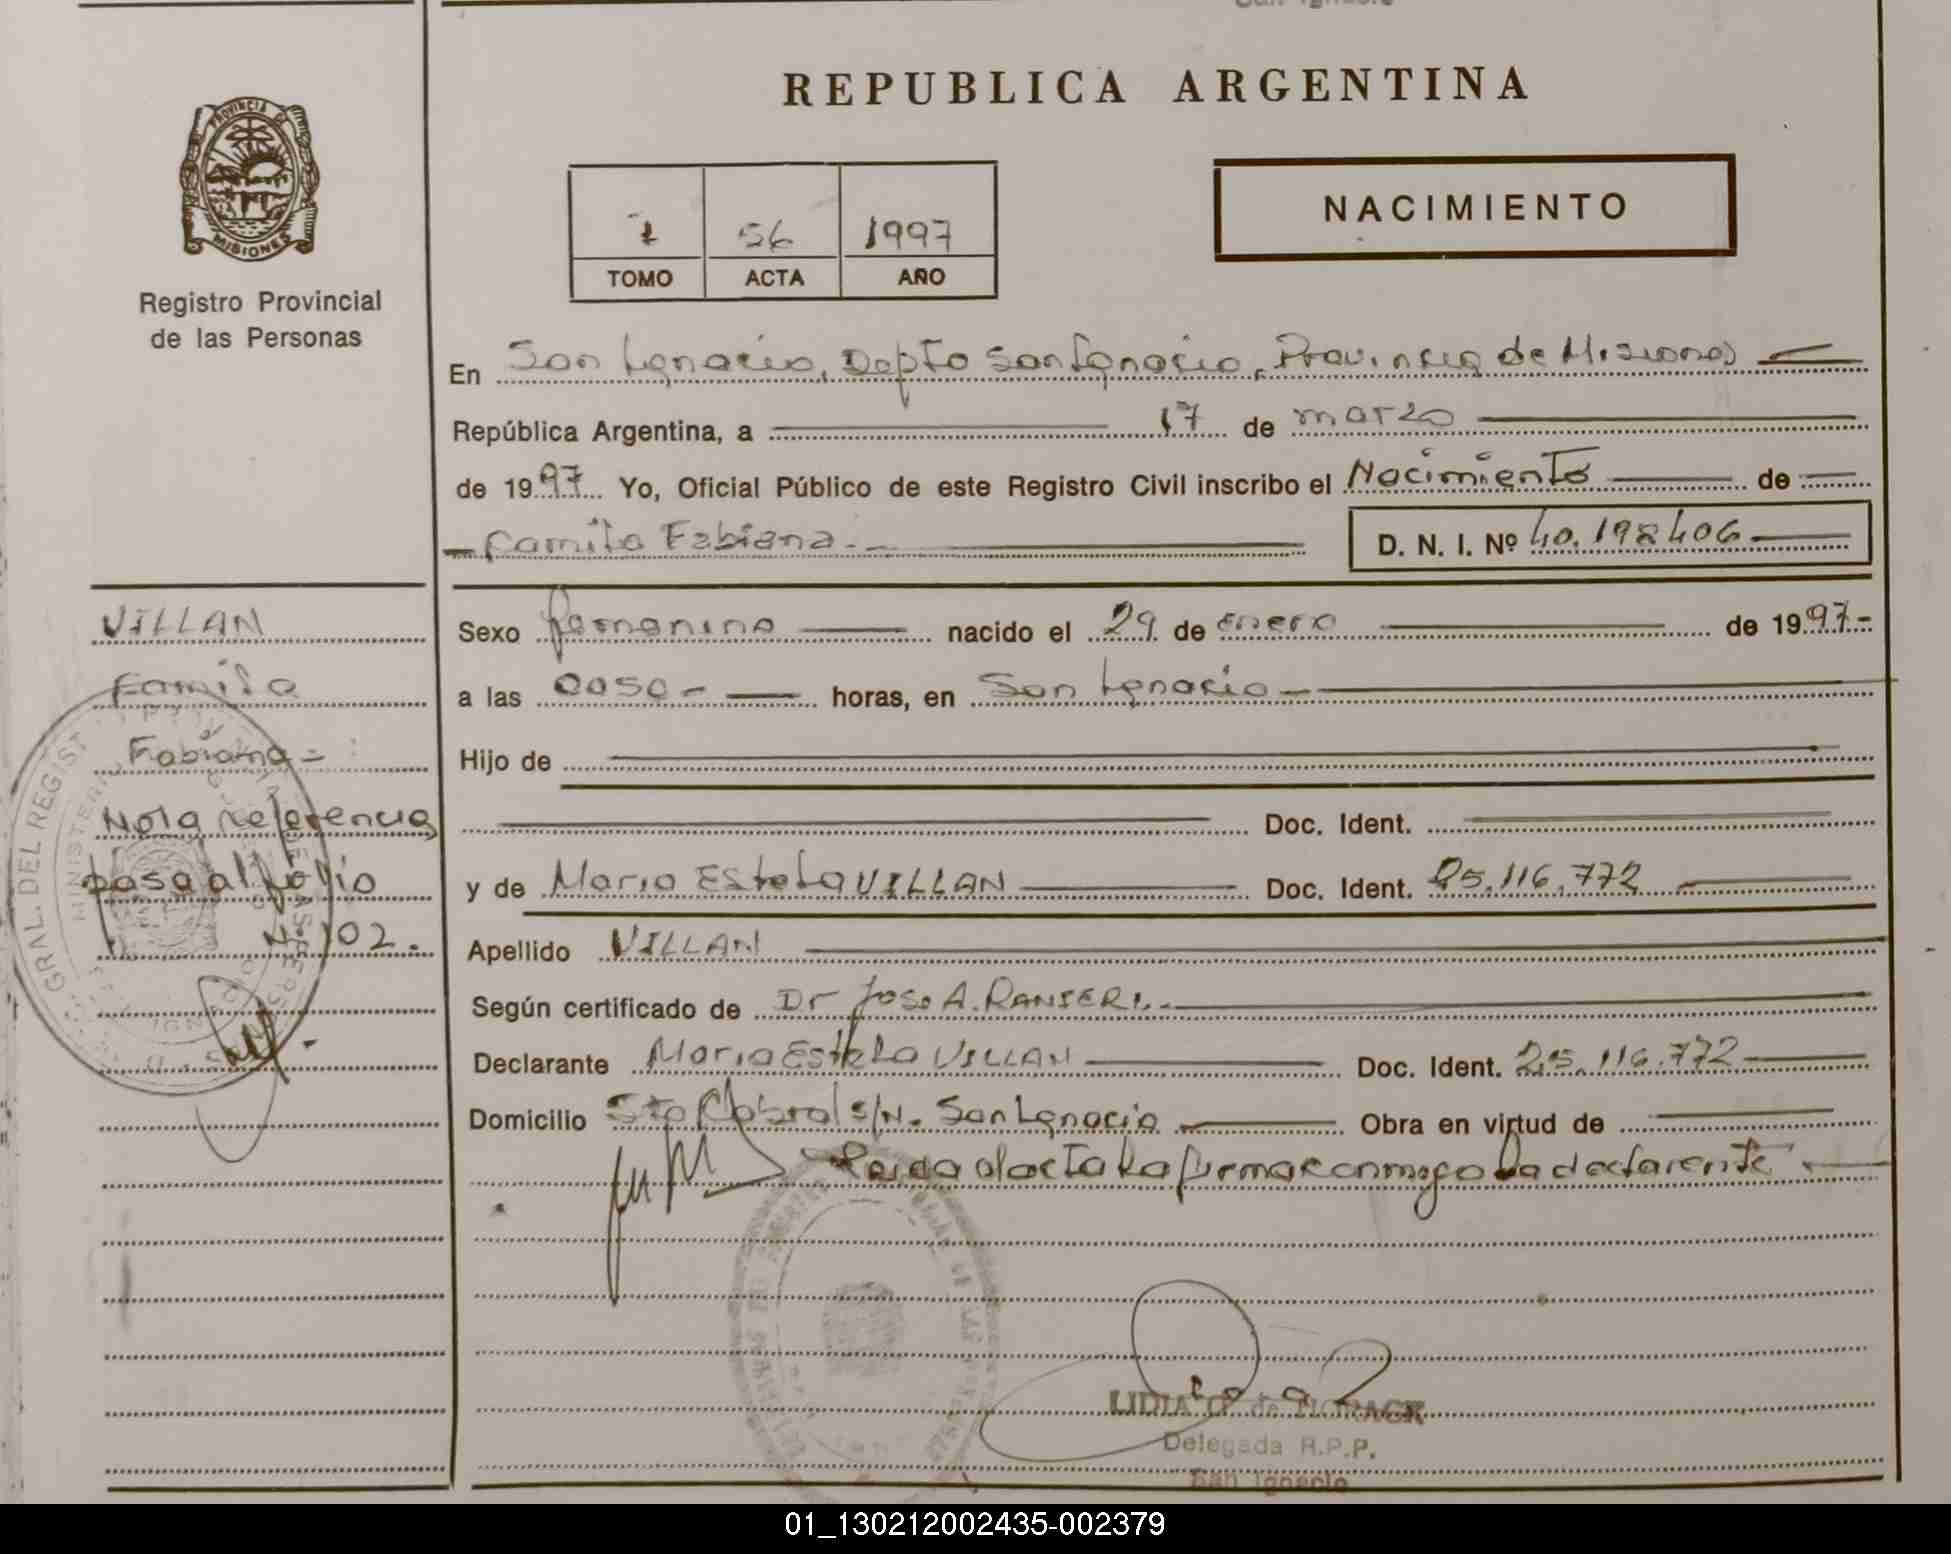 REPUBLICA ARGENTINA
PROVINCIA DE
MISIONES
Registro Provincial
de las Personas
1 56 1997
TOMO ACTA AÑO
NACIMIENTO
En San Ignacio, Depto San Ignacio, Provincia de Misiones
República Argentina, a 17 de marzo
de 1997 Yo, Oficial Público de este Registro Civil inscribo el Nacimiento de
Camila Fabiana.- D. N. I. Nº 40.198406
VILLAN
Camila
Fabiana-
Nota referencia
pasa al folio
Nº 102.
Sexo femenino nacido el 29 de enero de 1997-
a las 0050- horas, en San Ignacio-
Hijo de
Doc. Ident.
y de Maria Estela VILLAN Doc. Ident. 25.116.772
Apellido VILLAN
Según certificado de Dr Jose A. RANIERI.-
Declarante Maria Estela VILLAN Doc. Ident. 25.116.772
Domicilio Sto Cabral s/N. San Ignacio Obra en virtud de
Leida el acta la firma conmigo la declarente
GRAL. DEL REGIST
MINISTERI
Delegada R.P.P.
San Ignacio
01_130212002435-002379